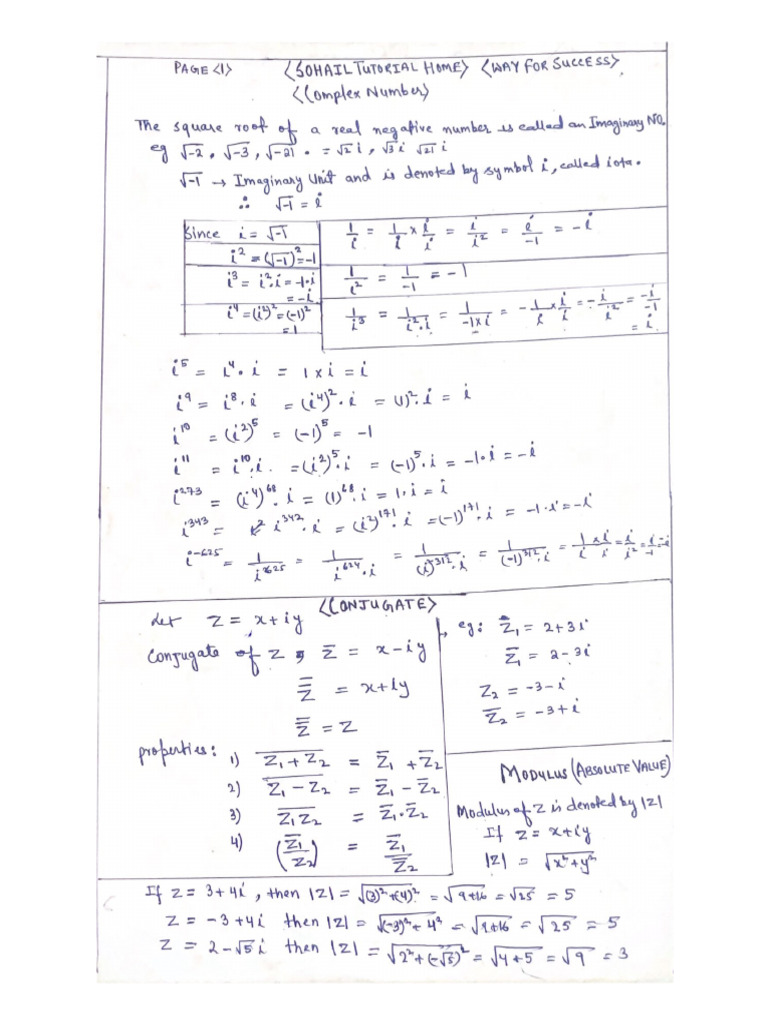 PAGE <1> <SOHAIL TUTORIAL HOME> <WAY FOR SUCCESS>
<Complex Number>
The square root of a real negative number is called an Imaginary NO.
eg √-2 , √-3 , √-21 . = √2 i , √3 i √21 i
√-1 → Imaginary Unit and is denoted by symbol i, called iota.
∴ √-1 = i
Since i = √-1
i² = (√-1)² = -1
i³ = i².i = -1.i
= -i
i⁴ = (i²)² = (-1)²
= 1
1/i = 1/i × i/i = i/i² = i/-1 = -i
1/i² = 1/-1 = -1
1/i³ = 1/i².i = 1/-1×i = -1/i × i/i = -i/i² = -i/-1
= i
i⁵ = i⁴ . i = 1 x i = i
i⁹ = i⁸ . i = (i⁴)² . i = (1)² . i = i
i¹⁰ = (i²)⁵ = (-1)⁵ = -1
i¹¹ = i¹⁰ . i = (i²)⁵ . i = (-1)⁵ . i = -1 . i = -i
i²⁷³ = (i⁴)⁶⁸ . i = (1)⁶⁸ . i = 1 . i = i
i³⁴³ = i³⁴² . i = (i²)¹⁷¹ . i = (-1)¹⁷¹ . i = -1 . i = -i
i⁻⁶²⁵ = 1/i⁶²⁵ = 1/i⁶²⁴ . i = 1/(i²)³¹² . i = 1/(-1)³¹² . i = 1/i × i/i = i/i² = i/-1 = -i
<CONJUGATE>
Let Z = x + iy
Conjugate of Z, Z̅ = x - iy
Z̿ = x + iy
Z̿ = Z
eg: Z₁ = 2 + 3i
Z̅₁ = 2 - 3i
Z₂ = -3 - i
Z̅₂ = -3 + i
properties: 1) \overline{Z₁ + Z₂} = Z̅₁ + Z̅₂
2) \overline{Z₁ - Z₂} = Z̅₁ - Z̅₂
3) \overline{Z₁Z₂} = Z̅₁ . Z̅₂
4) (Z̅₁/Z₂) = Z̅₁/Z̅₂
MODULUS (ABSOLUTE VALUE)
Modulus of Z is denoted by |Z|
If Z = x + iy
|Z| = √x² + y²
If Z = 3 + 4i , then |Z| = √(3)² + (4)² = √9 + 16 = √25 = 5
Z = -3 + 4i then |Z| = √(-3)² + 4² = √9 + 16 = √25 = 5
Z = 2 - √5 i then |Z| = √2² + (-√5)² = √4 + 5 = √9 = 3